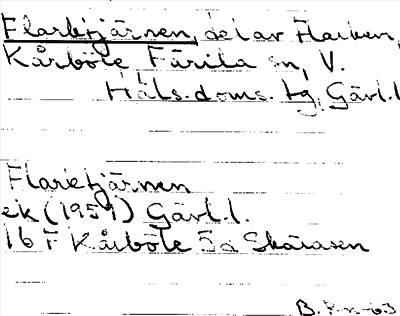 Flarktjärnen, del av Flarken,
Kårböle Färila sn, V.
Häls. doms. tg, Gävl.l
Flarktjärnen
ek (1959) Gävl.l.
16 F Kårböle 5a Skärasen